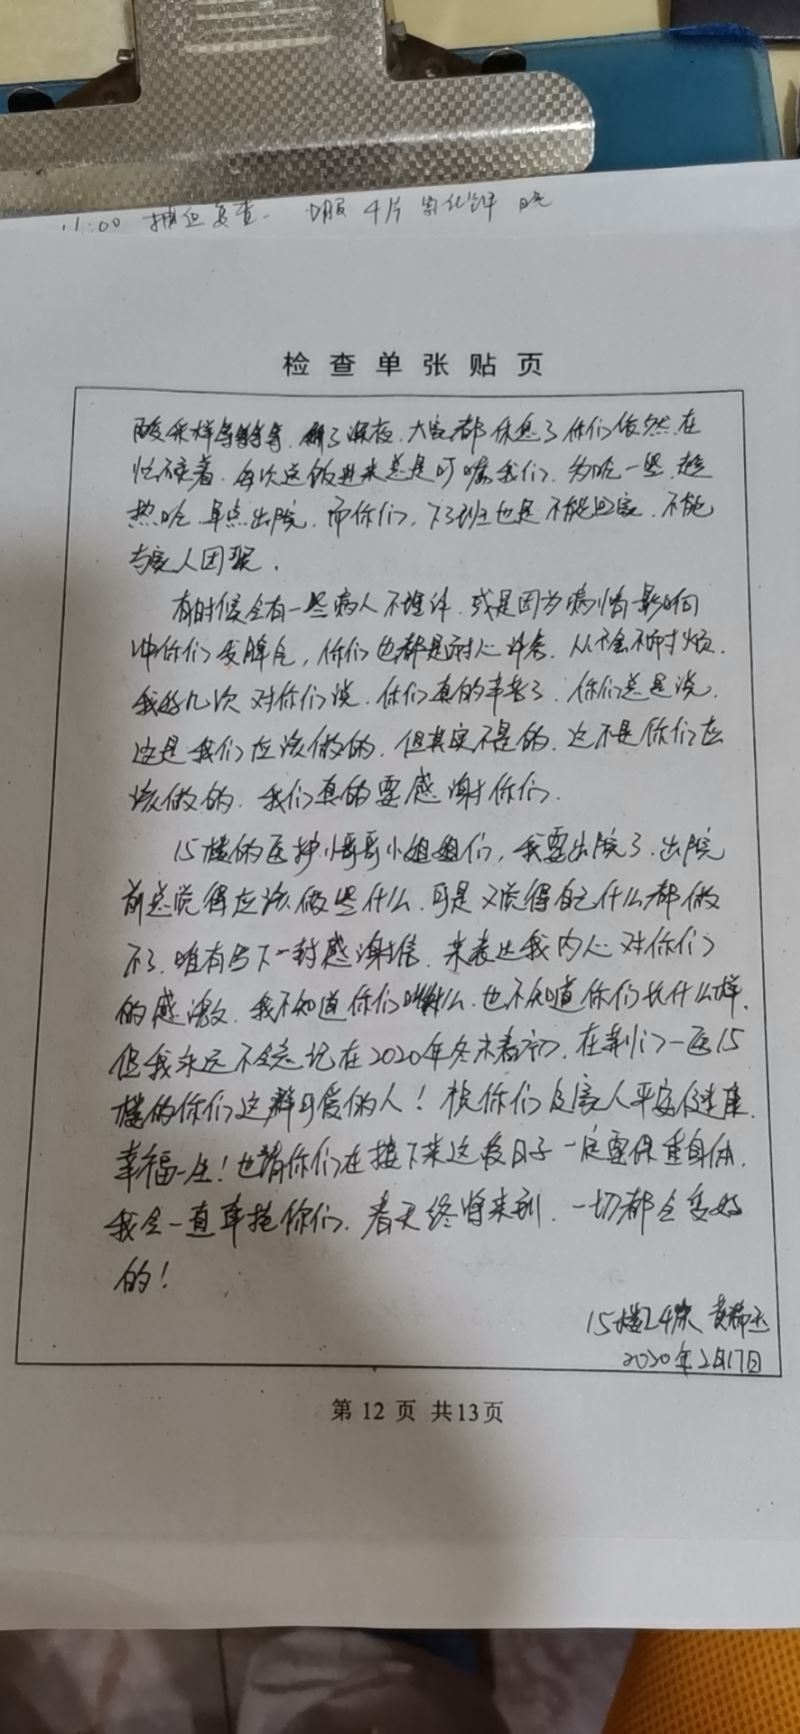 11:00 复查. 口服 4片 氯化钾 晚
检查单张贴页
酸采样等等等等. 到了深夜. 大家都休息了你们依然在
忙碌着. 每次送饭进来总是叮嘱我们. 多吃一些. 趁
热吃. 早点出院. 而你们, 下了班也是不能回家. 不能
与家人团聚.
有时候会有一些病人不理解. 或是因为病情影响
冲你们发脾气, 你们也都是耐心许多. 从不会不耐烦.
我好几次对你们说. 你们真的辛苦了. 你们总是说.
这是我们应该做的. 但其实不是的. 这不是你们应
该做的. 我们真的要感谢你们.
15楼的医护小哥哥小姐姐们, 我要出院了. 出院
前总觉得应该做些什么. 可是又觉得自己什么都做
不了. 唯有写下一封感谢信. 来表达我内心对你们
的感激. 我不知道你们叫什么. 也不知道你们长什么样.
但我永远不会忘记在2020年冬末春初. 在荆门一医15
楼的你们这群可爱的人! 祝你们及家人平安健康.
幸福一生! 也请你们在接下来这段日子一定要保重自体.
我会一直牵挂你们. 春天终将来到. 一切都会变好
的!
15楼24床 黄稀玉
2020年2月17日
第 12 页 共13页